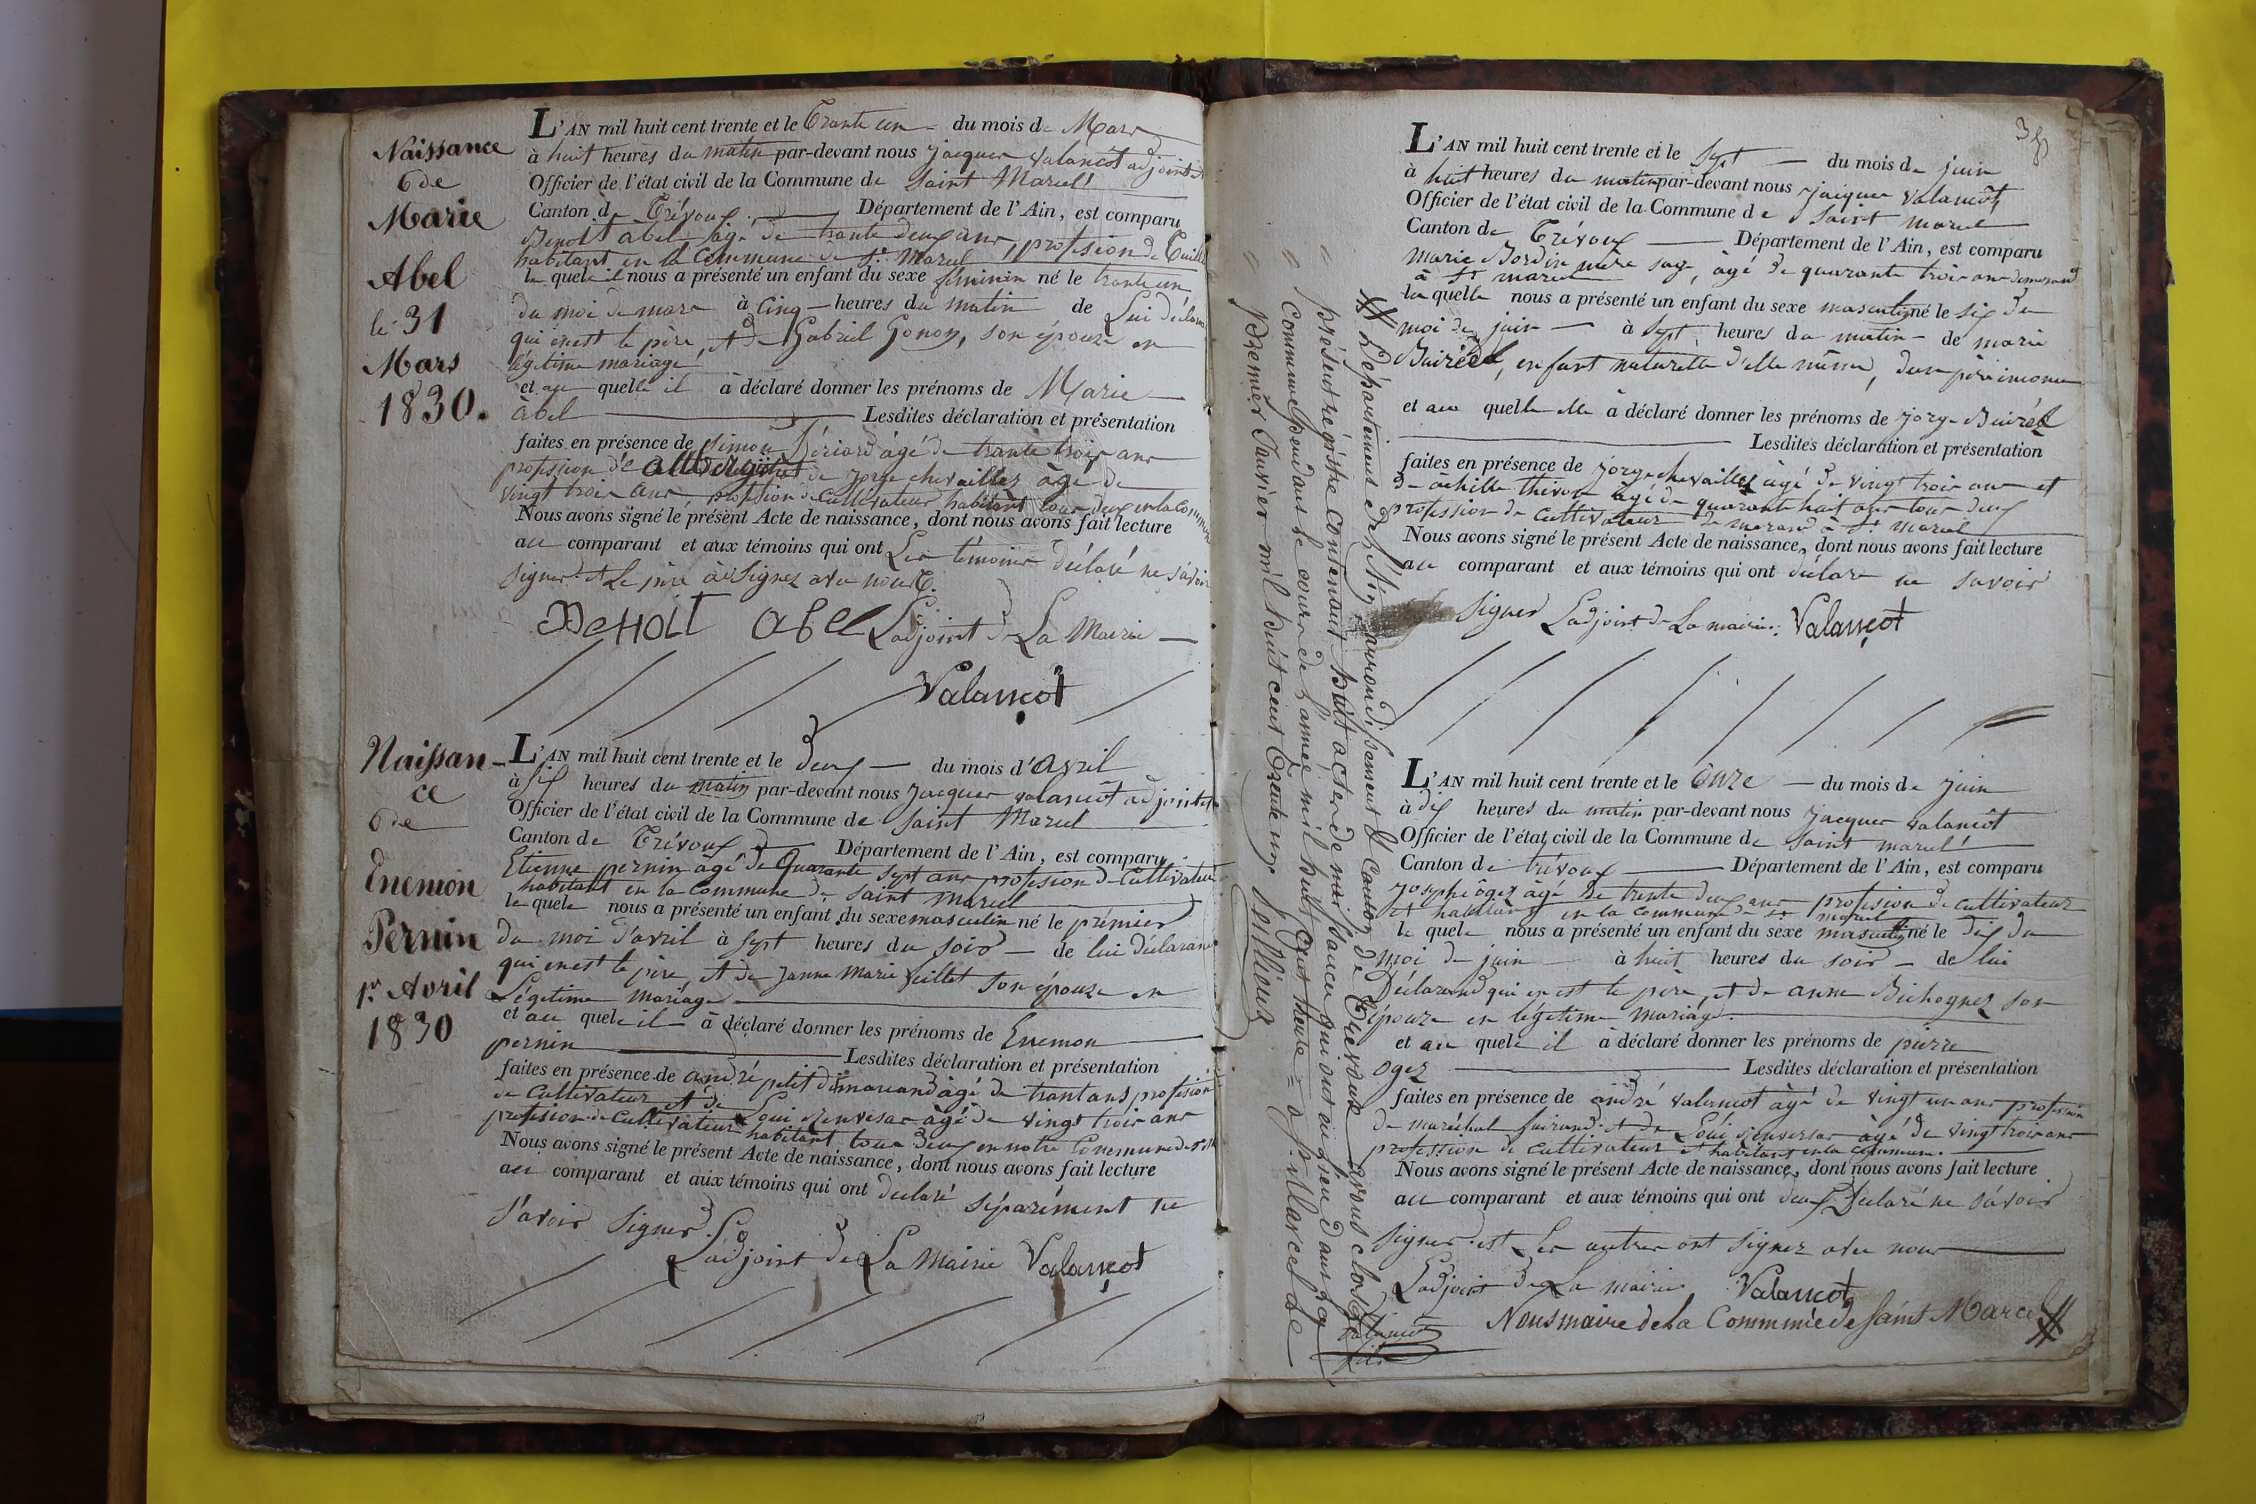 Naissance
de
Marie
Abel
le 31
Mars
1830.
L'AN mil huit cent trente et le Trante un du mois de Mars
à huit heures du matin par-devant nous jacques Valançot adjoint
Officier de l'état civil de la Commune de Saint Marcel
Canton de Trévoux Département de l'Ain, est comparu
Benoit abel âgé de trante deux ans, profession de
habitant en la Commune de St Marcel
le quele il nous a présenté un enfant du sexe féminin né le trante un
du moi de mars à Cinq heures du matin de Lui déclarant
qui en est le père, et de Gabriel Gonon, son épouze en
légitime mariage
et au quelle il à déclaré donner les prénoms de Marie
abel Lesdites déclaration et présentation
faites en présence de simon âgé de trante trois ans
profession de et de jorge chevaillez âgé de
vingt trois ans, profession de cultivateur habitant tous deux en la commune
Nous avons signé le présent Acte de naissance, dont nous avons fait lecture
au comparant et aux témoins qui ont Les témoins déclaré ne savoir
signer et Le père à signez avec nous.
Benoit abel Ladjoint de La Mairie
Valançot
Naissan-
ce
de
Enemon
Pernin
1er Avril
1830
L'AN mil huit cent trente et le deux du mois d'avril
à six heures du matin par-devant nous jacques valancot adjoint
Officier de l'état civil de la Commune de Saint Marcel
Canton de Trévoux Département de l'Ain, est comparu
Etienne pernin âgé de Quarante sept ans profession de Cultivateur
habitant en la Commune de saint Marcel
le quele nous a présenté un enfant du sexe masculin né le prémier
du moi d'avril à sept heures du soir de lui déclarant
qui en est le père, et de janne Marie son épouze en
Légitime mariage
et au quele il à déclaré donner les prénoms de Enemon
pernin Lesdites déclaration et présentation
faites en présence de andré petit âgé de trant ans profession
de Cultivateur et de Loui Renversar âgé de vingt trois ans
profession de Cultivateur habitant tous deux en notre Commune de St
Nous avons signé le présent Acte de naissance, dont nous avons fait lecture
au comparant et aux témoins qui ont declaré séparément ne
savoir signer
Ladjoint de La Mairie Valançot
L'AN mil huit cent trente et le sept du mois de juin
à huit heures du matin par-devant nous jacques valancot
Officier de l'état civil de la Commune de saint marcel
Canton de Trévoux Département de l'Ain, est comparu
Marie Bordin mère sage, âgé de quarante trois ans demeurand
à St marcel
la quelle nous a présenté un enfant du sexe masculin né le six du
moi de juin à sept heures du matin de marie
enfant naturelle d'elle même, d'un père inconu
et au quelle elle à déclaré donner les prénoms de jorge
Lesdites déclaration et présentation
faites en présence de jorge chevaillez âgé de vingt trois ans et
de achille thivon âgé de quarante huit ans tous deux
profession de cultivateur demeurand à St marcel
Nous avons signé le présent Acte de naissance, dont nous avons fait lecture
au comparant et aux témoins qui ont déclaré ne savoir
signer Ladjoint de La mairie Valançot
L'AN mil huit cent trente et le Onze du mois de juin
à dix heures du matin par-devant nous jacques valancot
Officier de l'état civil de la Commune de saint marcel
Canton de trévoux Département de l'Ain, est comparu
josephe ogez âgé de trente deux ans profession de cultivateur
et habitant en la commune de St marcel
le quele nous a présenté un enfant du sexe masculin né le dix du
moi de juin à huit heures du soir de lui
Déclarand qui en est le père, et de anne Bichognez son
épouze en légitime mariage
et au quele il à déclaré donner les prénoms de pierre
ogez Lesdites déclaration et présentation
faites en présence de andré valancot âgé de vingt un ans profession
de maréchal feirand et de Loui Renversar âgé de vingt trois ans
profession de cultivateur et habitant en la commune.
Nous avons signé le présent Acte de naissance, dont nous avons fait lecture
au comparant et aux témoins qui ont deux Declaré ne savoir
signer est Les autres ont signez avec nous
Ladjoint de La mairie Valancot
Nous maire de la Commune de Saint Marcel #
# Département de l'Ain arrondissement & canton de Trévoux avons clos le
présent régistre contenant huit actes de naissances qui ont eu lieu dans la
Commune pendant le cours de l'année mil huit cent trente à St Marcel le
premier Janvier mil huit cent trente un